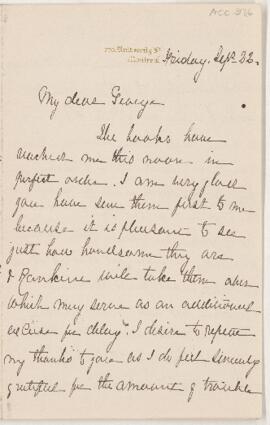 ACC 576
770 University St
Montreal
Friday. Sept 22.
My dear George
The books have
reached me this noon in
perfect order. I am very glad
you have sent them first to me
because it is pleasant to see
just how handsome they are
& Rankine will take them over
which may serve as an additional
excuse for delay. I desire to repeat
my thanks to you as I do feel sincerely
grateful for the amount of trouble